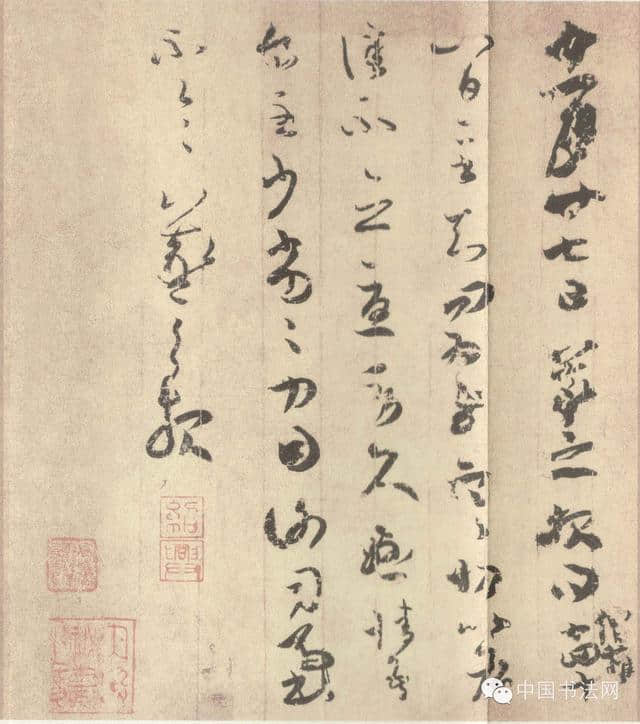 十一月廿七日羲之報得十四
八日二書知問為慰寒切比各
佳不念憂勞久懸情吾
食至少劣劣力因謝司馬書
不一一羲之報
紹興
中国书法网